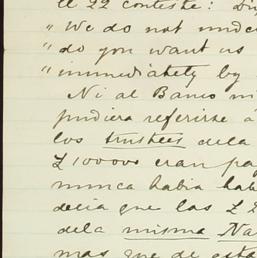 el 22 conteste: Di
"We do not unde
"do you want us
"immediately by
Ni al Banco ni
pudiera referirse á
los trustees de la
£100000 eran pa
nunca habia hab
decia que las £2
de la misma Na
mas que de esta